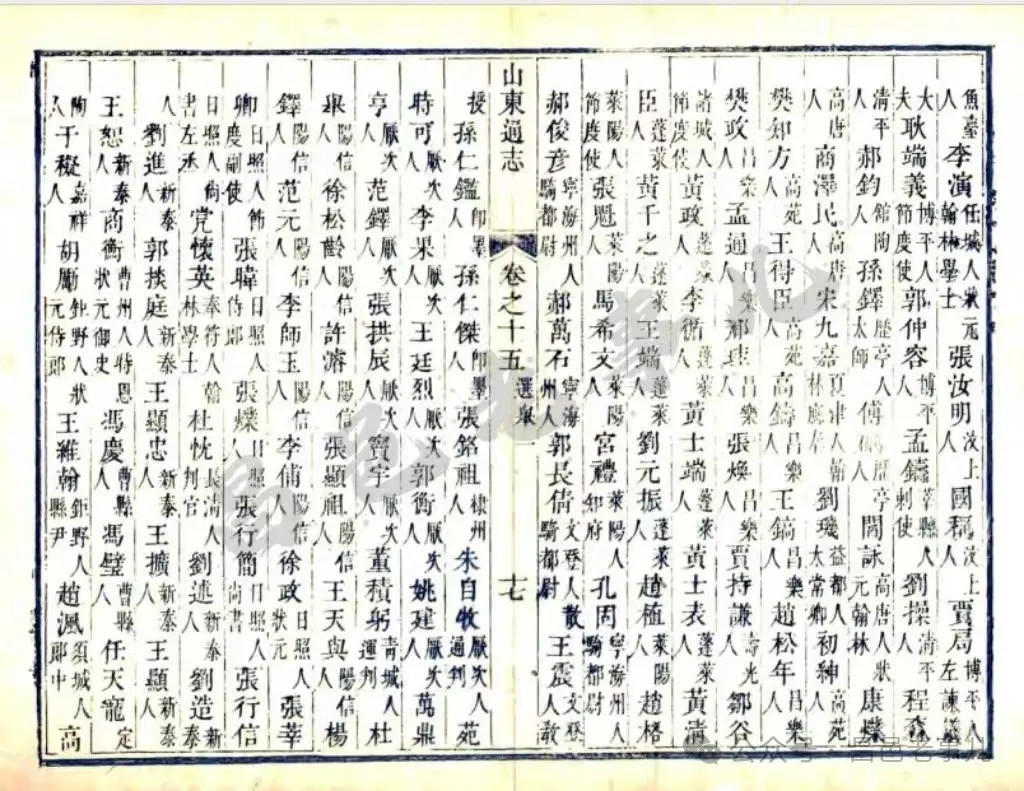 魚臺人李演任城人狀元翰林學士張汝明汶上人國稱汶上人賈局博平人左諫議
大夫耿端義博平人節度使郭仲容博平人孟鑄莘縣人刺史劉操清平人程森
清平人郝鈞館陶人孫鐸歷亭人太師傅歷亭人閻詠高唐人狀元翰林康爗
高唐人商澤民高唐人宋九嘉夏津人翰林應奉劉璣益都人太常卿初紳高苑人
樊知方高苑人王得臣高苑人高鑄昌樂人王鎬昌樂人趙松年昌樂人
樊政昌樂人孟通昌樂人邢珪昌樂人張煥昌樂人賈持謙壽光人鄒谷
諸城人節度使黃政蓬萊人李循蓬萊人黃士端蓬萊人黃士表蓬萊人黃清
臣蓬萊人黃千之蓬萊人王端蓬萊人劉元振蓬萊人趙植萊陽人趙格
萊陽人節度使張魁萊陽人馬希文萊陽人宮禮萊陽人知府孔固寧海州人騎都尉
郝俊彥寧海州人騎都尉郝萬石寧海州人郭長倩文登人騎都尉散王震文登人教
山東通志 卷之十五 選舉一 七
授孫仁鑑即墨人孫仁傑即墨人張鉻祖棣州人朱自牧厭次人通判苑
時可厭次人李果厭次人王廷烈厭次人郭衡厭次人姚建厭次人萬鼎
亨厭次人范鐸厭次人張拱辰厭次人竇宇厭次人董積躬青城人運判杜
舉陽信人徐松齡陽信人許濬陽信人張顯祖陽信人王天與陽信人楊
鐸陽信人范元陽信人李師玉陽信人李俌陽信人徐政日照人狀元張莘
卿日照人節慶副使張暐日照人侍郎張爗日照人張行簡日照人尚書張行信
日照人尚書左丞党懷英奉符人翰林學士杜忱長清人判官劉述新泰人劉造新泰
人劉進新泰人郭掞庭新泰人王顯忠新泰人王擴新泰人王顯新泰人
王恕新泰人商衡曹州人特恩狀元御史馮慶曹縣人馮璧曹縣人任天寵定
陶人于礙嘉祥人胡勵鉅野人狀元侍郎王維翰鉅野人縣尹趙渢須城人郎中高
昌邑老事兒
公众号·昌邑老事儿